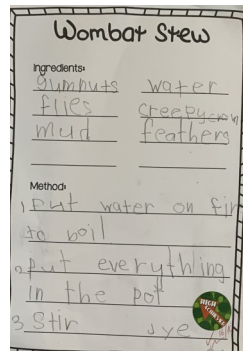 Wombat Stew
Ingredients:
gumnuts water
flies creepycraw
mud feathers
Method:
1. Put water on fir
to boil
2. Put everything
in the pot
3. Stir